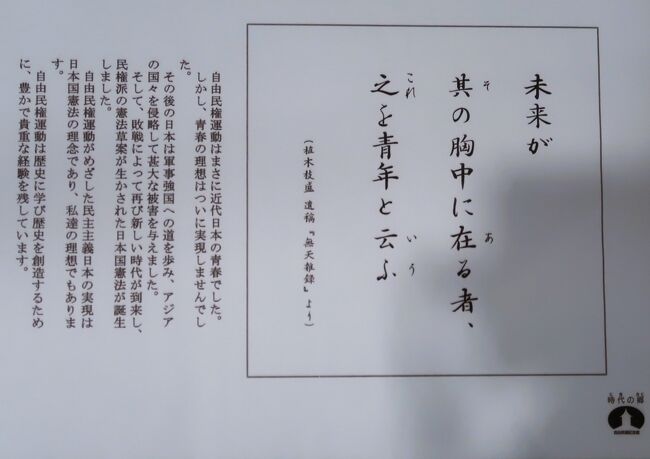 未来が
其の胸中に在る者、
そ
あ
之を青年と云ふ
これ
いう
(植木枝盛 遺稿『無天雑録』より)
自由民権運動はまさに近代日本の青春でした。
しかし、青春の理想はついに実現しませんでし
た。
その後の日本は軍事強国への道を歩み、アジア
の国々を侵略して甚大な被害を与えました。
そして、敗戦によって再び新しい時代が到来し、
民権派の憲法草案が生かされた日本国憲法が誕生
しました。
自由民権運動がめざした民主主義日本の実現は
日本国憲法の理念であり、私達の理想でもありま
す。
自由民権運動は歴史に学び歴史を創造するため
に、豊かで貴重な経験を残しています。
時代の郷
自由民権記念館